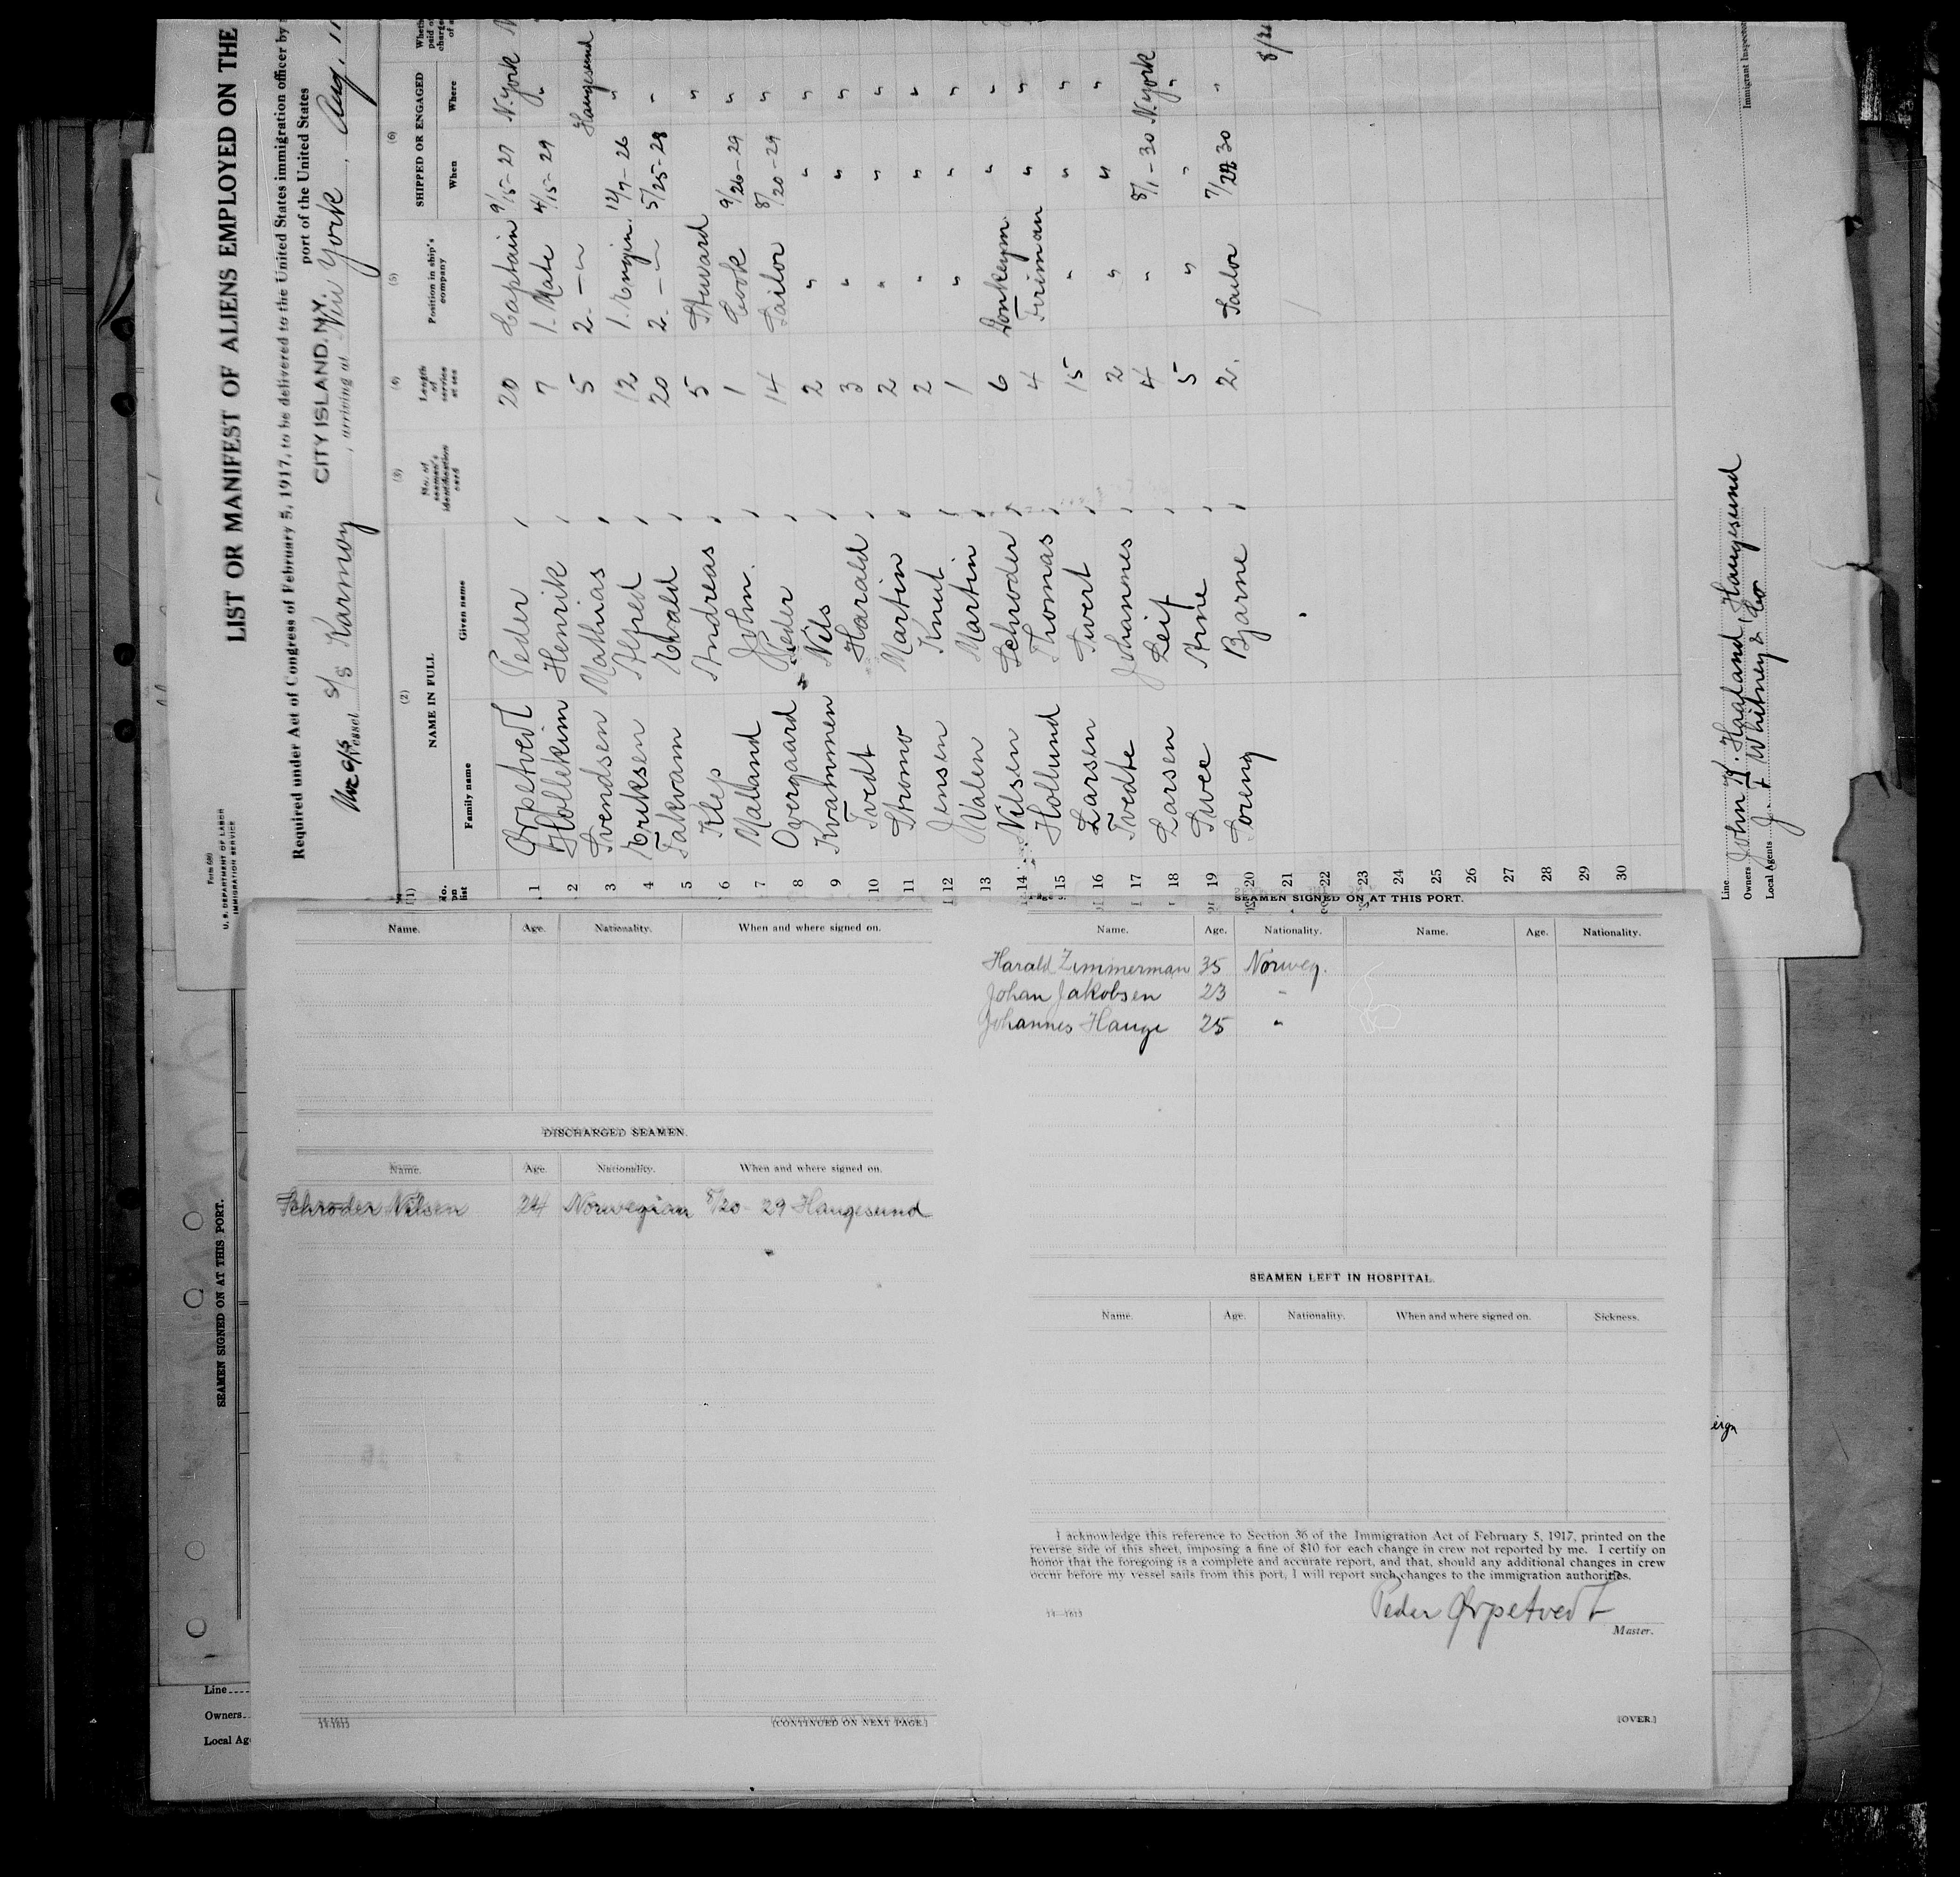 Form 680
U. S. DEPARTMENT OF LABOR
IMMIGRATION SERVICE
LIST OR MANIFEST OF ALIENS EMPLOYED ON THE
Required under Act of Congress of February 5, 1917, to be delivered to the United States immigration officer by
port of the United States
CITY ISLAND. N.Y.
Vessel S/S Karmoy, arriving at New York, Aug. 11
(1) (2) (3) (4) (5) (6)
No. on list NAME IN FULL No. of seaman's identification card Length of service at sea Position in ship's company SHIPPED OR ENGAGED
Family name Given name When Where
1 Ørpetvedt Peder 20 Captain 9/15-27 N.york
2 Hollekim Henrik 7 1. Mate 4/15-29 "
3 Svendsen Mathias 5 2. — " Haugesund
4 Eriksen Alfred 12 1. Engin. 12/7-26 "
5 Takvam Evald 20 2. — " 5/25-28 "
6 Klep Andreas 5 Steward "
7 Malland John. 1 Cook 9/26-29 "
8 Overgaard Peder 14 Sailor 8/20-29 "
9 Kvammen Nils 2 " " "
10 Tvedt Harald 3 " " "
11 Stromo Martin 2 " " "
12 Jensen Knut 2 " " "
13 Malen Martin 1 " " "
14 Nilsen Schroder 6 Donkeym. " "
15 Hollund Thomas 4 Fireman " "
16 Larsen Sivert 15 " " "
17 Tvedte Johannes 2 " " "
18 Larsen Leif 4 " 8/1-30 N.york
19 Svee Arne 5 " " "
20 Soreng Bjarne 2. Sailor 7/28 30 "
21
22
23
24
25
26
27
28
29
30
Line
Owners John K. Haaland, Haugesund
Local Agents J F Whitney & Co
Immigrant Inspector
Name. Age. Nationality. When and where signed on.
DISCHARGED SEAMEN.
Name. Age. Nationality. When and where signed on.
Schroder Nilsen 24 Norwegian 8/20-29 Haugesund
14-1613
[CONTINUED ON NEXT PAGE.]
SEAMEN SIGNED ON AT THIS PORT.
Name. Age. Nationality. Name. Age. Nationality.
Harald Zimmerman 35 Norweg.
Johan Jakobsen 23 "
Johannes Hauge 25 "
SEAMEN LEFT IN HOSPITAL.
Name. Age. Nationality. When and where signed on. Sickness.
I acknowledge this reference to Section 36 of the Immigration Act of February 5, 1917, printed on the
reverse side of this sheet, imposing a fine of $10 for each change in crew not reported by me. I certify on
honor that the foregoing is a complete and accurate report, and that, should any additional changes in crew
occur before my vessel sails from this port, I will report such changes to the immigration authorities.
Peder Ørpetvedt
Master.
14-1613
[OVER.]
SEAMEN SIGNED ON AT THIS PORT.
Line
Owners
Local Ag